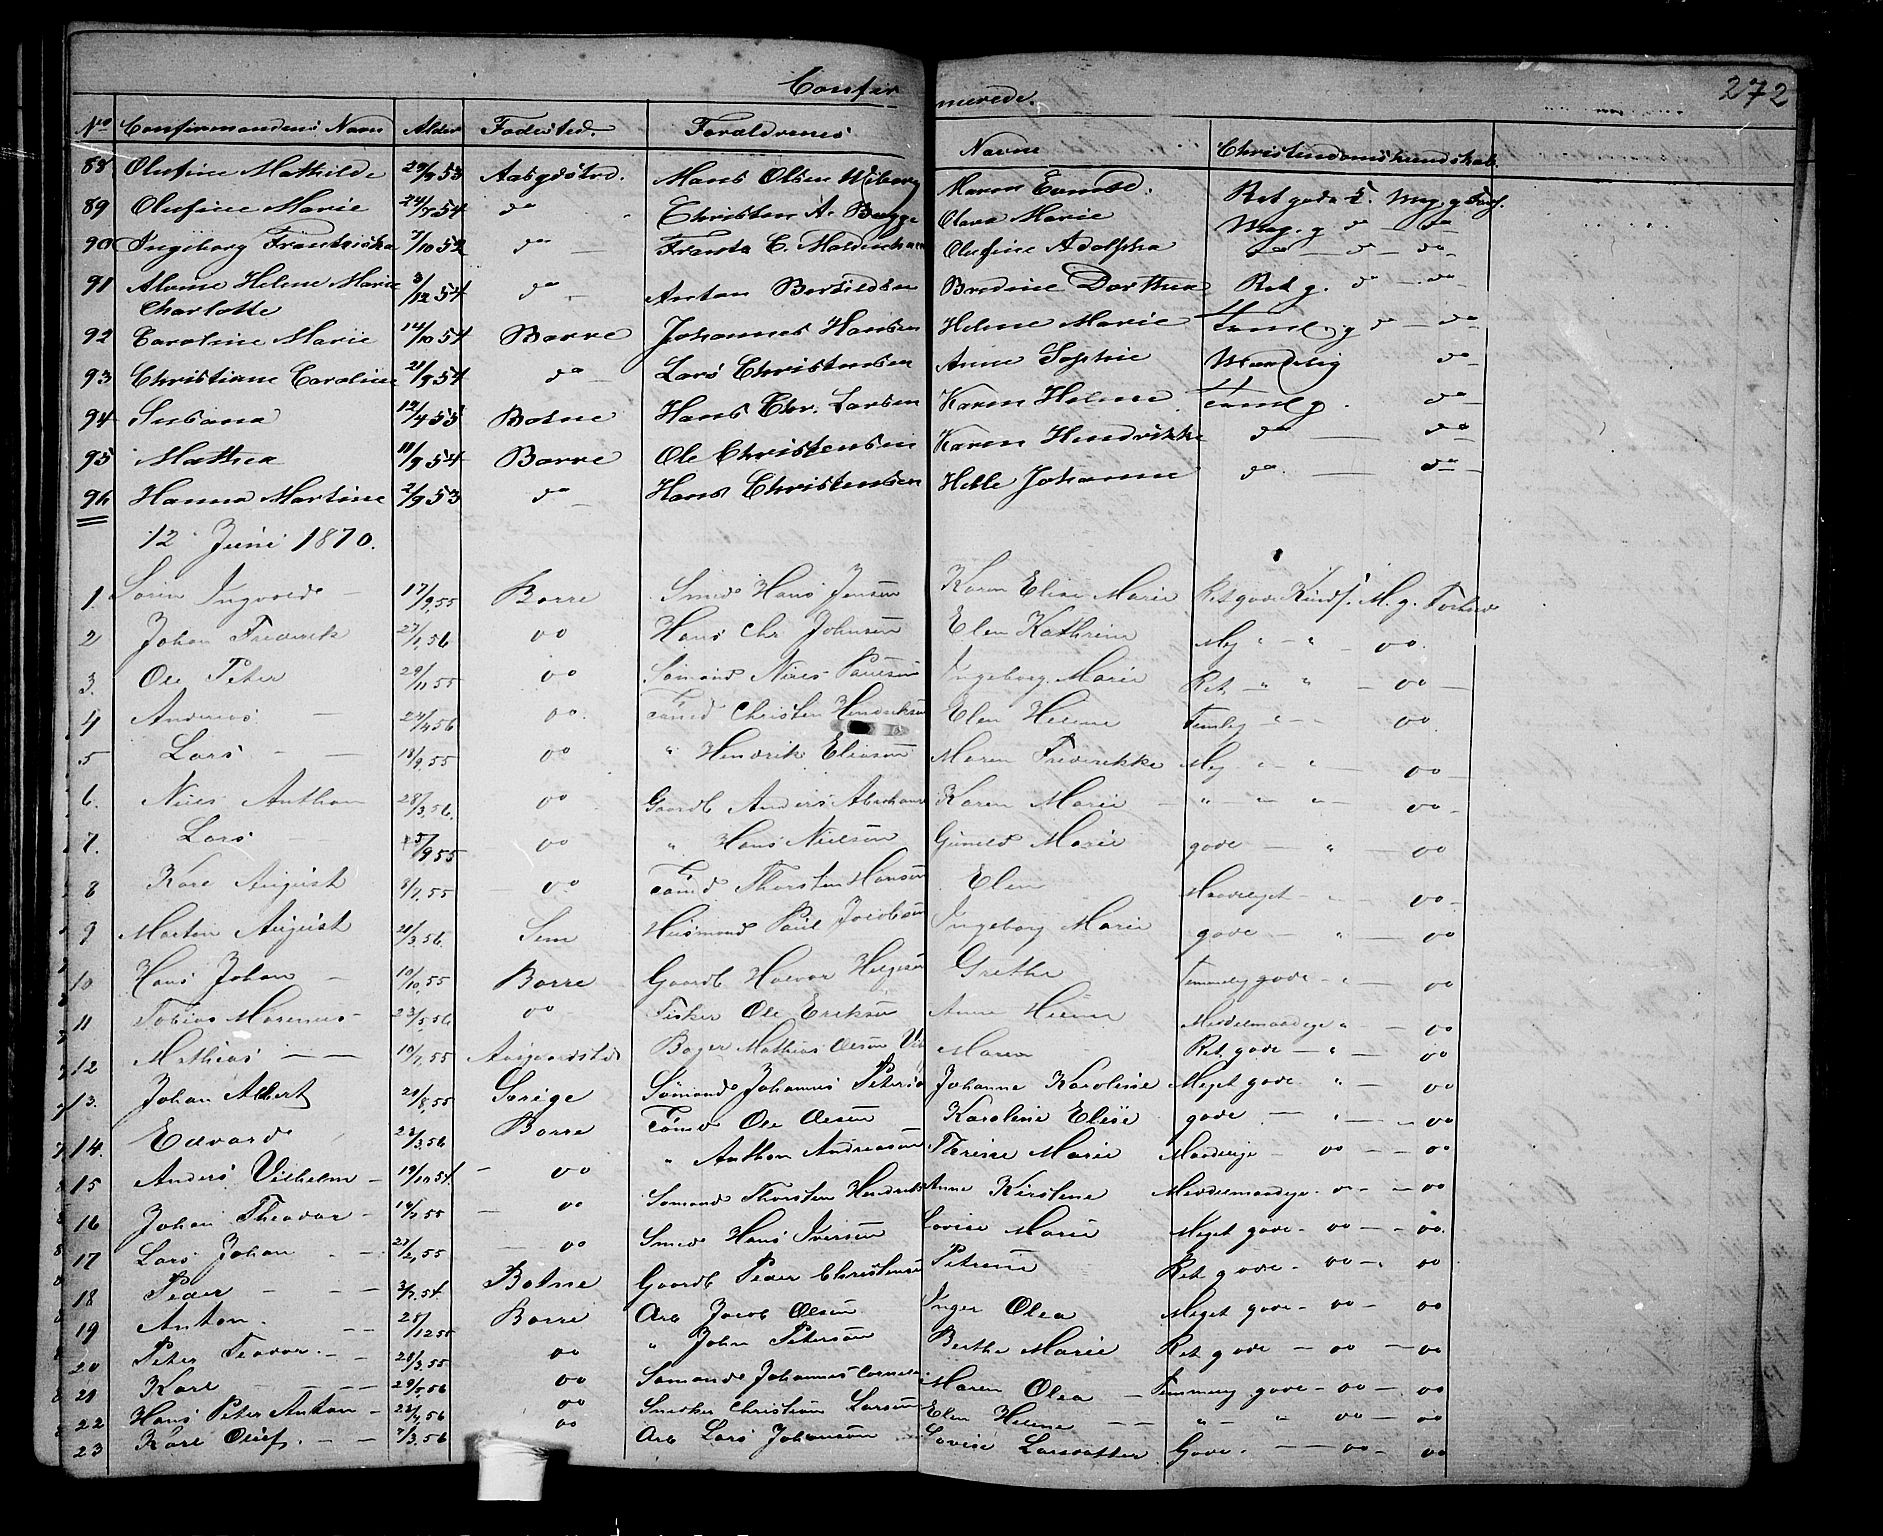 272
Confirmerede.
No Confirmandens Navn Alder Fødested. Forældrenes Navne Christendomskundskab
88. Olufine Mathilde 53 Aasgdstrd. Hans Olsen Wiborg Maren Ret gode K. Meg. g. Forh.
89 Olufine Marie 24/7 54 do Christen A. Bugge Olava Marie Meg. g do do
90 Ingeborg Frantziska 7/10 52 do Frants C. Olufine Adolpha do do do
91 Alvine Helene Marie Charlotte 3/12 54 do Anton Bertildsen Bredine Dorthea Ret g. do do
92 Caroline Marie 14/10 54 Borre Johannes Hansen Helene Marie Teml. g do do
93 Christiane Caroline 21/9 54 do Lars Christensen Anne Sophie Maadelig do
94 Susana 19/4 55 Botne Hans Chr. Larsen Karen Helene Teml g. do
95 Mathea 11/9 54 Borre Ole Christensen Karen Hendrikke do do
96 Hanna Martine 2/9 53 do Hans Christensen Helle Johanne do do
12 Juni 1870.
1. Sørin Ingvold 17/9 55 Borre Smed Hans Jensen Karen Elise Marie Ret gode Kundsk. M. g. Forhold
2 Johan Frederik 27/1 56 do Hans Chr Johnsen Elen Kathrine Meg " " do.
3. Ole Peter 29/11 55 do Sømand Niels Paulsen Ingeborg Marie Ret " " do
4 Andreas 56 do. Tømd Christen Hendriksen Elen Helene Temlig " do
5 Lars 18/9 55 do " Hendrik Eliasen Maren Frederikke Meg " " do
6. Niels Anthon 28/3 56. do Gaardb Anders Abraham Karen Marie " " " do
7. Lars 5/9 55 do " Hans Nielsen Gunild Marie gode " do
8 Karl August 55 do Tømd Thorsten Hansen Elen Maadeligt " do
9 Morten August 56. Sem Huusmand Paul Jacobsen Ingeborg Marie gode " do
10 Hans Johan 10/10 55 Borre Gaardb Halvor Helgesen Grethe Temmelig gode " do
11 Tobias Marenius 23/5 56 do Fisker Ole Eriksen Anne Helene Middelmaadige " do
12 Mathias 55 Aasgaardstrd Bager Mathias Olsen Maren Ret gode " do
13. Johan Albert 55 Sverige Sømand Johannes Peterse Johanne Karoline Meget gode " do
14. Edvard 56 Borre Tømd Ole Olsen Karoline Elise gode " do
15 Anders Vilhelm 19/10 54. do " Anthon Andreasen Therese Marie Maadelige do do
16 Johan Theodor 55 do Sømand Thorsten Hendriks Anne Kirstine Middelmaadige do do
17 Lars Johan 55 do Smed Hans Iversen Lovise Marie Meget gode do do.
18 Peder 54. Botne Gaardb Peder Christensen Petrine Ret gode do do
19 Anton. 12 55 Borre Arb Jacob Olsen Inger Olea Meget gode do do
20 Peter Teodor. 28/3 55 do " John Petersen Berthe Marie Ret gode do do
21 Karl 56 do Sømand Johannes Maren Olea Temmelig gode do do
22 Hans Peter Anton 56 do Snedker Christian Larsen Elen Helene " " do do
23 Karl Oluf. 7/3 56 do Arb Lars Johansen Lovise Larsdatter Gode. do do